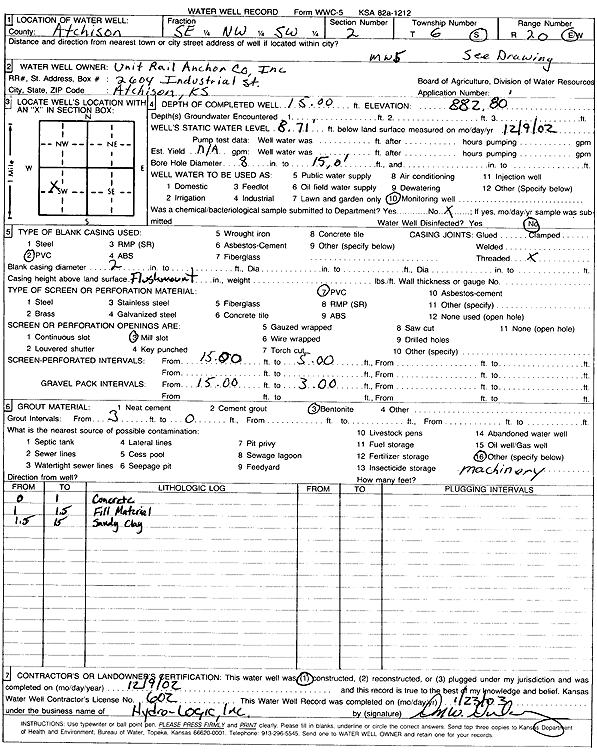 WATER WELL RECORD Form WWC-5 KSA 82a-1212
1 LOCATION OF WATER WELL: Fraction Section Number Township Number Range Number
County: Atchison SE ¼ NW ¼ SW ¼ 2 T 6 S R 20 E/W
Distance and direction from nearest town or city street address of well if located within city?
MW5 See Drawing
2 WATER WELL OWNER: Unit Rail Anchor Co, Inc
RR#, St. Address, Box # : 2604 Industrial St. Board of Agriculture, Division of Water Resources
City, State, ZIP Code : Atchison, KS Application Number:
3 LOCATE WELL'S LOCATION WITH AN "X" IN SECTION BOX:
N
NW NE
W E
X SW SE
S
1 Mile
4 DEPTH OF COMPLETED WELL 15.00 ft. ELEVATION: 882.80
Depth(s) Groundwater Encountered 1. ft. 2. ft. 3. ft.
WELL'S STATIC WATER LEVEL 8.71' ft. below land surface measured on mo/day/yr 12/9/02
Pump test data: Well water was ft. after hours pumping gpm
Est. Yield N/A gpm: Well water was ft. after hours pumping gpm
Bore Hole Diameter 8 in. to 15.0' ft., and in. to ft.
WELL WATER TO BE USED AS: 5 Public water supply 8 Air conditioning 11 Injection well
1 Domestic 3 Feedlot 6 Oil field water supply 9 Dewatering 12 Other (Specify below)
2 Irrigation 4 Industrial 7 Lawn and garden only 10 Monitoring well
Was a chemical/bacteriological sample submitted to Department? Yes No X ; If yes, mo/day/yr sample was submitted Water Well Disinfected? Yes No
5 TYPE OF BLANK CASING USED: 5 Wrought iron 8 Concrete tile CASING JOINTS: Glued Clamped
1 Steel 3 RMP (SR) 6 Asbestos-Cement 9 Other (specify below) Welded
2 PVC 4 ABS 7 Fiberglass Threaded X
Blank casing diameter 2 in. to ft., Dia in. to ft., Dia in. to ft.
Casing height above land surface Flushmount in., weight lbs./ft. Wall thickness or gauge No.
TYPE OF SCREEN OR PERFORATION MATERIAL: 7 PVC 10 Asbestos-cement
1 Steel 3 Stainless steel 5 Fiberglass 8 RMP (SR) 11 Other (specify)
2 Brass 4 Galvanized steel 6 Concrete tile 9 ABS 12 None used (open hole)
SCREEN OR PERFORATION OPENINGS ARE: 5 Gauzed wrapped 8 Saw cut 11 None (open hole)
1 Continuous slot 3 Mill slot 6 Wire wrapped 9 Drilled holes
2 Louvered shutter 4 Key punched 7 Torch cut 10 Other (specify)
SCREEN-PERFORATED INTERVALS: From 15.00 ft. to 5.00 ft., From ft. to ft.
From ft. to ft., From ft. to ft.
GRAVEL PACK INTERVALS: From 15.00 ft. to 3.00 ft., From ft. to ft.
From ft. to ft., From ft. to ft.
6 GROUT MATERIAL: 1 Neat cement 2 Cement grout 3 Bentonite 4 Other
Grout Intervals: From 3 ft. to 0 ft., From ft. to ft., From ft. to ft.
What is the nearest source of possible contamination: 10 Livestock pens 14 Abandoned water well
1 Septic tank 4 Lateral lines 7 Pit privy 11 Fuel storage 15 Oil well/Gas well
2 Sewer lines 5 Cess pool 8 Sewage lagoon 12 Fertilizer storage 16 Other (specify below)
3 Watertight sewer lines 6 Seepage pit 9 Feedyard 13 Insecticide storage machinery
Direction from well? How many feet?
FROM TO LITHOLOGIC LOG FROM TO PLUGGING INTERVALS
0 1 Concrete
1 1.5 Fill Material
1.5 15 Sandy Clay
7 CONTRACTOR'S OR LANDOWNER'S CERTIFICATION: This water well was (1) constructed, (2) reconstructed, or (3) plugged under my jurisdiction and was
completed on (mo/day/year) 12/9/02 and this record is true to the best of my knowledge and belief. Kansas
Water Well Contractor's License No. 602 This Water Well Record was completed on (mo/day/yr) 1/23/03
under the business name of Hydro-Logic, Inc. by (signature)
INSTRUCTIONS: Use typewriter or ball point pen. PLEASE PRESS FIRMLY and PRINT clearly. Please fill in blanks, underline or circle the correct answers. Send top three copies to Kansas Department
of Health and Environment, Bureau of Water, Topeka, Kansas 66620-0001. Telephone: 913-296-5545. Send one to WATER WELL OWNER and retain one for your records.